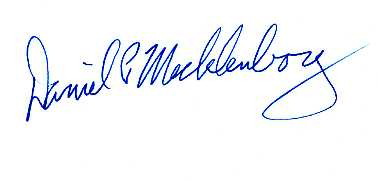 Daniel P Mecklenborg